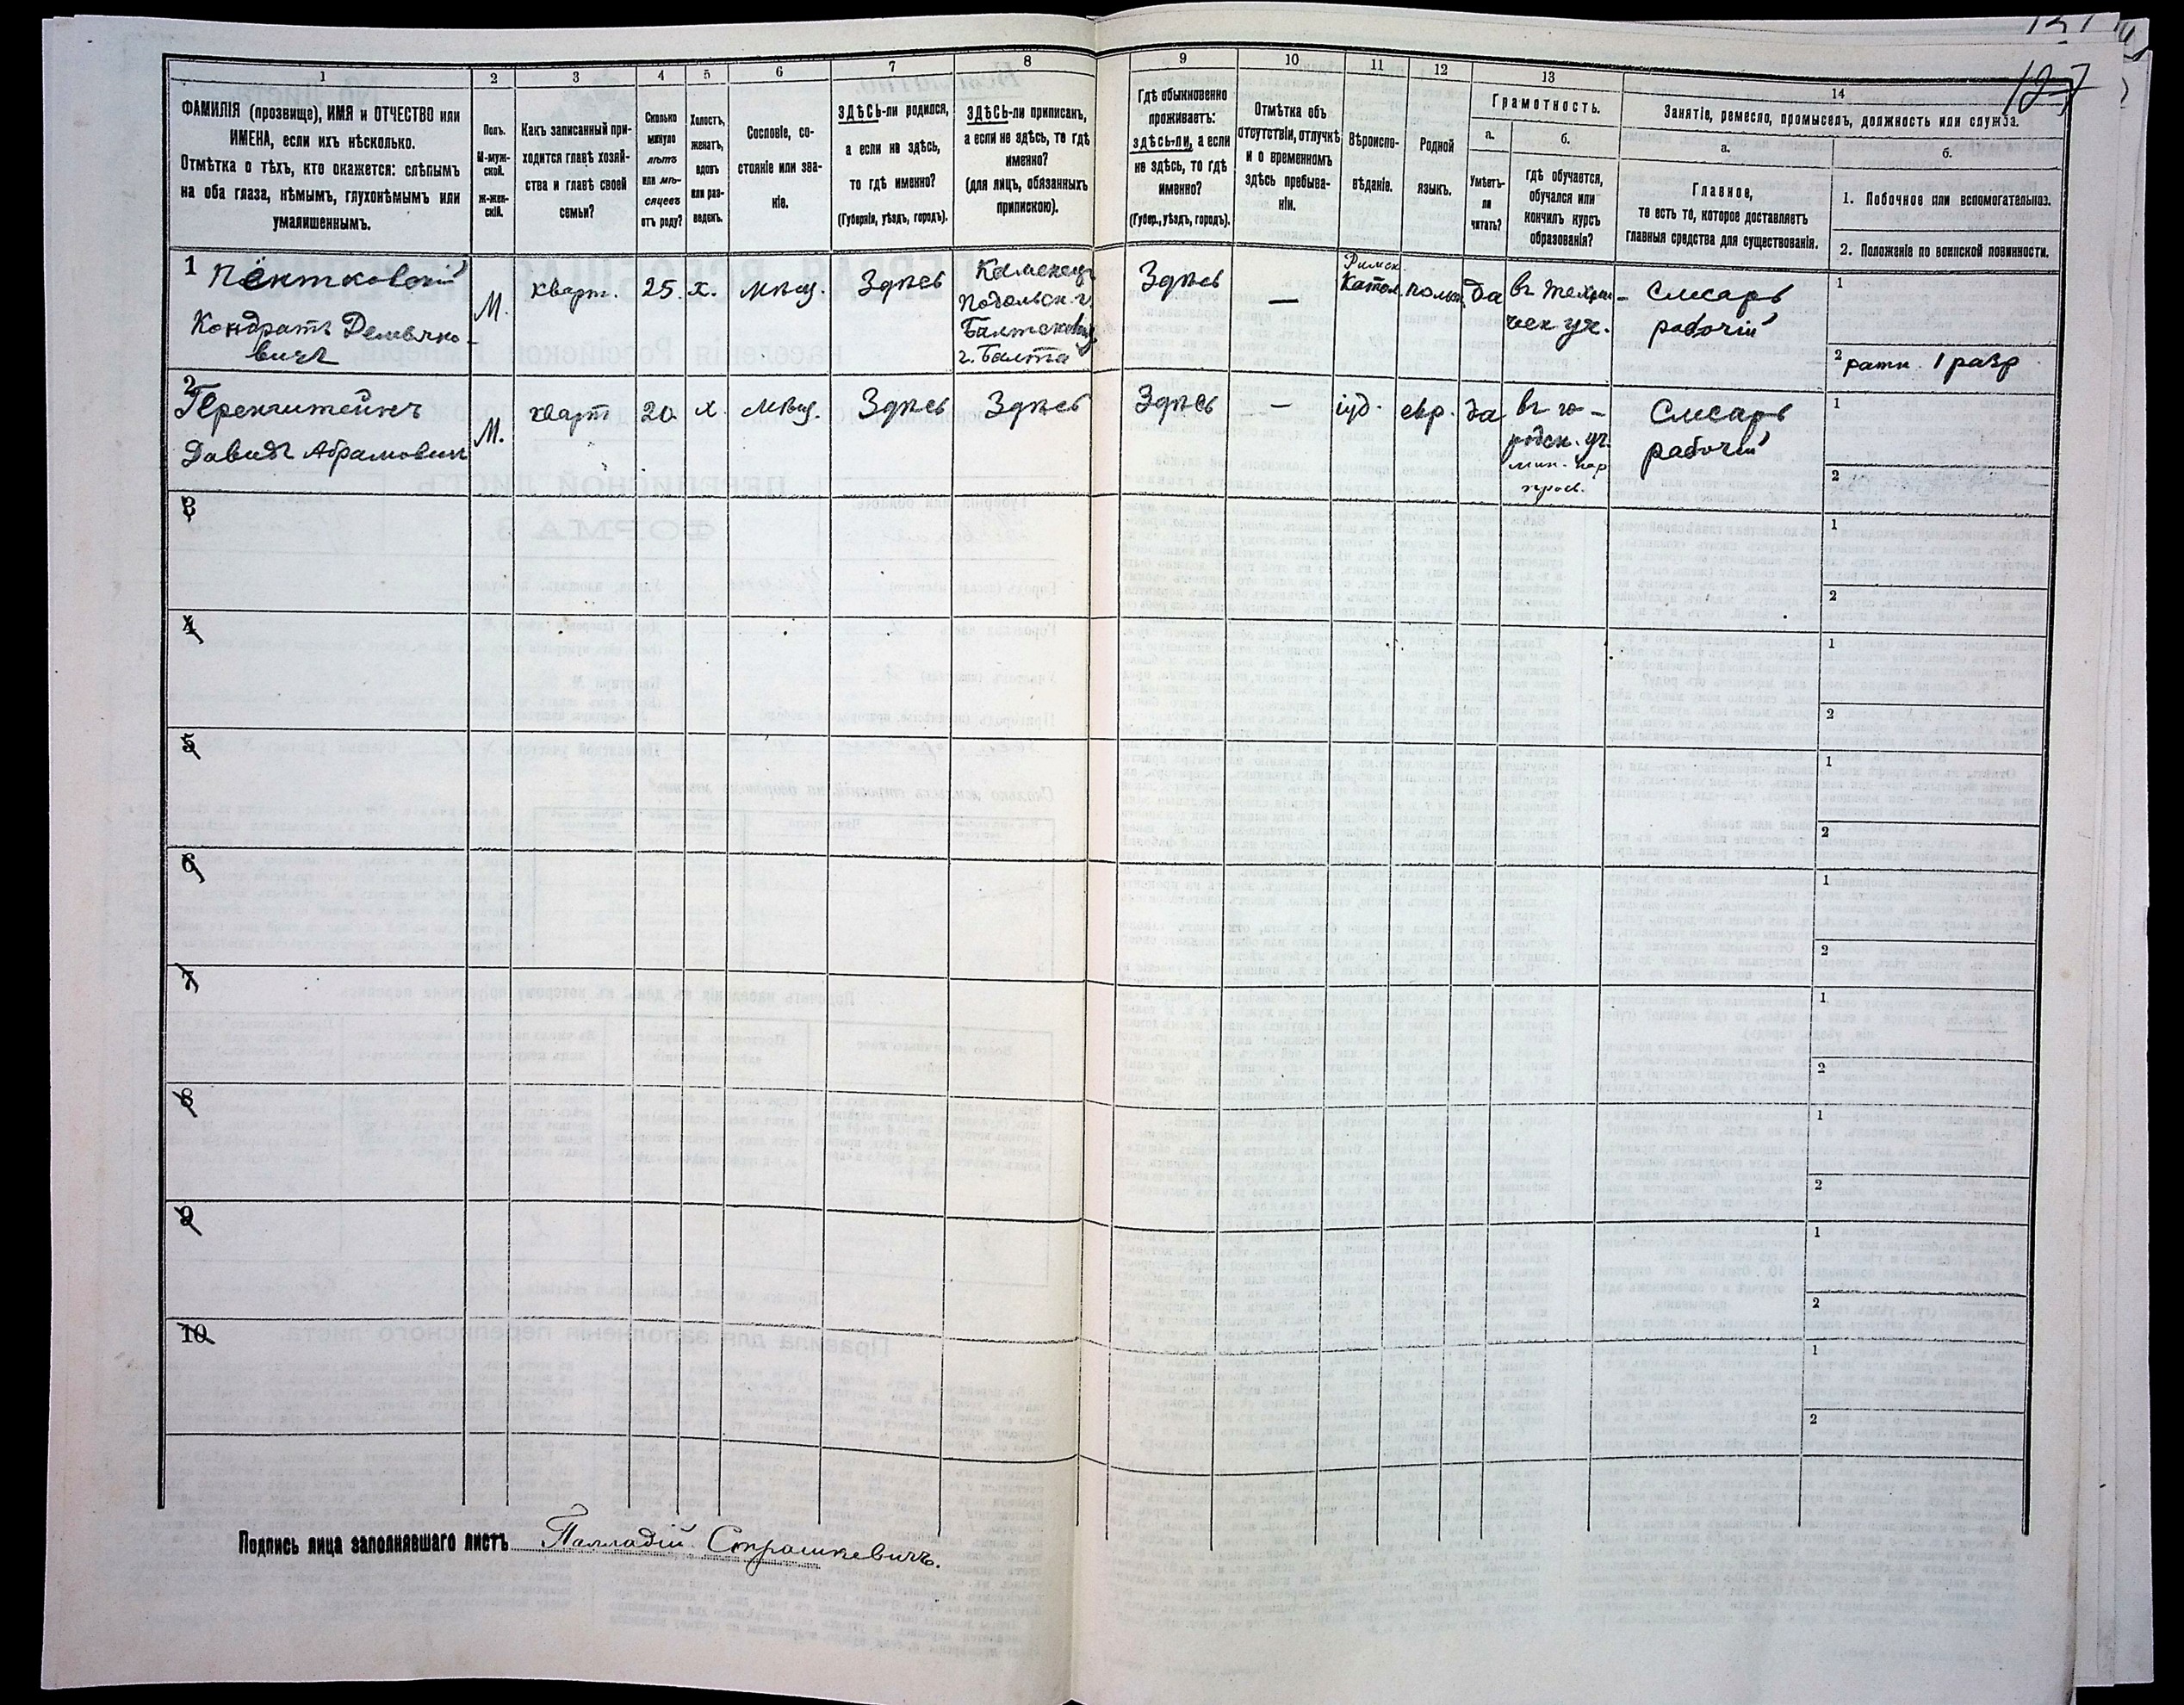 127
1
2
3
4
5
6
7
8
9
10
11
12
13
14
ФАМИЛІЯ (прозвище), ИМЯ и ОТЧЕСТВО или
ИМЕНА, если ихъ нѣсколько.
Отмѣтка о тѣхъ, кто окажется: слѣпымъ
на оба глаза, нѣмымъ, глухонѣмымъ или
умалишеннымъ.
Полъ.
М-муж-
ской.
Ж-жен-
скій.
Какъ записанный при-
ходится главѣ хозяй-
ства и главѣ своей
семьи?
Сколько
минуло
лѣтъ
или мѣ-
сяцевъ
отъ роду?
Холостъ,
женатъ,
вдовъ
или раз-
веденъ.
Сословіе, со-
стояніе или зва-
ніе.
ЗДѢСЬ-ли родился,
а если не здѣсь,
то гдѣ именно?
(Губернія, уѣздъ, городъ).
ЗДѢСЬ-ли приписанъ,
а если не здѣсь, то гдѣ
именно?
(для лицъ, обязанныхъ
припискою).
Гдѣ обыкновенно
проживаетъ:
здѣсь-ли, а если
не здѣсь, то гдѣ
именно?
(Губер., уѣздъ, городъ).
Отмѣтка объ
отсутствіи, отлучкѣ
и о временномъ
здѣсь пребыва-
ніи.
Вѣроиспо-
вѣданіе.
Родной
языкъ.
Грамотность.
а.
Умѣетъ-
ли
читать?
б.
гдѣ обучается,
обучался или
кончилъ курсъ
образованія?
Занятіе, ремесло, промыселъ, должность или служба.
а.
Главное,
то есть то, которое доставляетъ
главныя средства для существованія.
б.
1. Побочное или вспомогательное.
2. Положеніе по воинской повинности.
1
Кондратъ Демьяно-
вичъ
М.
кварт.
25.
х.
мѣщ.
Здѣсь
Каменец
Подольск. г.
г. Балта
Здѣсь
—
Римск.
Катол.
польс.
да
чек уч.
Слесарь
рабочій
1
2 ратн. 1 разр
2
Давидъ Абрамовичъ
М.
кварт
20
х.
мѣщ.
Здѣсь
Здѣсь
Здѣсь
—
іуд.
евр.
да
въ го-
родск. уч.
мин. нар
просв.
Слесарь
рабочій
1
2
3
1
2
4
1
2
5
1
2
6
1
2
7
1
2
8
1
2
9
1
2
10
1
2
Подпись лица заполнявшаго листъ Палладій Страшкевичъ.